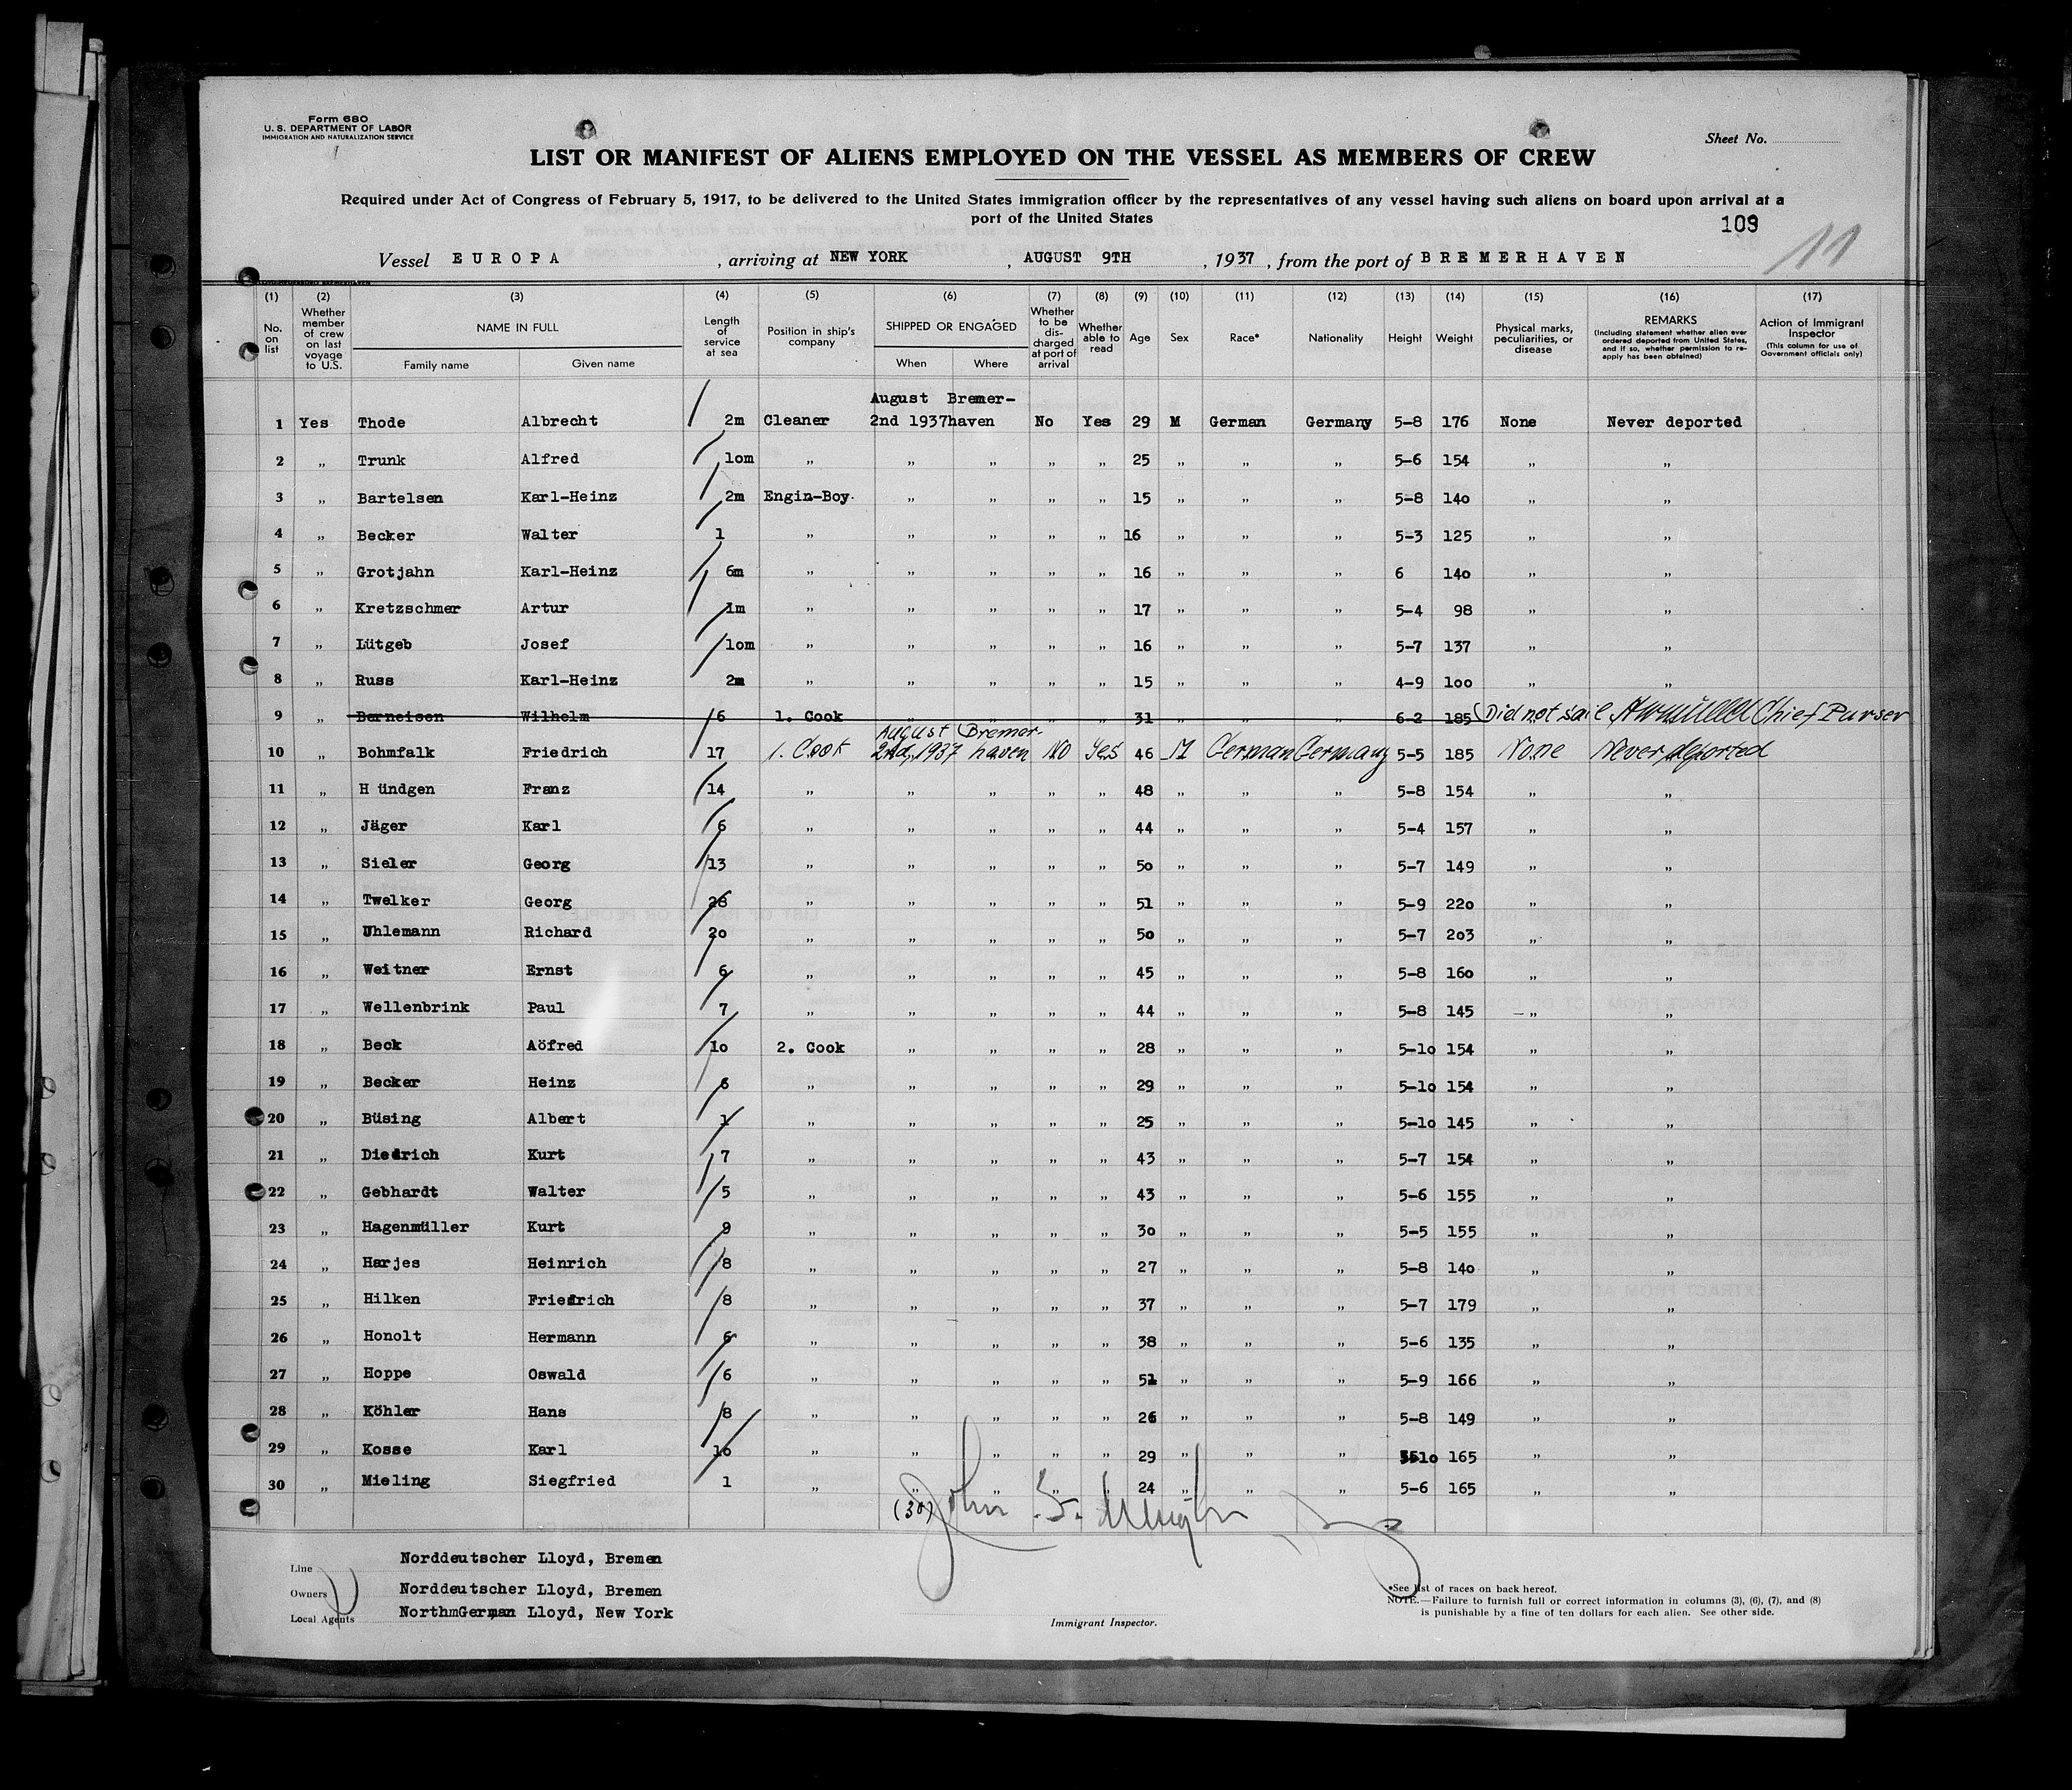 Form 680
U. S. DEPARTMENT OF LABOR
IMMIGRATION AND NATURALIZATION SERVICE
Sheet No.
LIST OR MANIFEST OF ALIENS EMPLOYED ON THE VESSEL AS MEMBERS OF CREW
Required under Act of Congress of February 5, 1917, to be delivered to the United States immigration officer by the representatives of any vessel having such aliens on board upon arrival at a
port of the United States
109
11
Vessel EUROPA, arriving at NEW YORK, AUGUST 9TH, 1937, from the port of BREMERHAVEN
(1) (2) (3) (4) (5) (6) (7) (8) (9) (10) (11) (12) (13) (14) (15) (16) (17)
No. on list Whether member of crew on last voyage to U.S. NAME IN FULL Family name Given name Length of service at sea Position in ship's company SHIPPED OR ENGAGED When Where Whether to be dis-charged at port of arrival Whether able to read Age Sex Race* Nationality Height Weight Physical marks, peculiarities, or disease REMARKS (Including statement whether alien ever ordered deported from United States, and if so, whether permission to re-apply has been obtained) Action of Immigrant Inspector (This column for use of Government officials only)
August Bremer-
1 Yes Thode Albrecht 2m Cleaner 2nd 1937 haven No Yes 29 M German Germany 5-8 176 None Never deported
2 „ Trunk Alfred 1om „ „ „ „ „ 25 „ „ „ 5-6 154 „ „
3 „ Bartelsen Karl-Heinz 2m Engin-Boy. „ „ „ „ 15 „ „ „ 5-8 14o „ „
4 „ Becker Walter 1 „ „ „ „ „ 16 „ „ „ 5-3 125 „ „
5 „ Grotjahn Karl-Heinz 6m „ „ „ „ „ 16 „ „ „ 6 14o „ „
6 „ Kretzschmer Artur 1m „ „ „ „ „ 17 „ „ „ 5-4 98 „ „
7 „ Lütgeb Josef 1om „ „ „ „ „ 16 „ „ „ 5-7 137 „ „
8 „ Russ Karl-Heinz 2m „ „ „ „ „ 15 „ „ „ 4-9 1oo „ „
9 „ Berneisen Wilhelm 6 1. Cook „ „ „ „ 31 „ „ „ 6-2 185 Did not sail Chief Purser
August Bremer-
10 „ Bohmfalk Friedrich 17 1. Cook 2nd, 1937 haven No Yes 46 M German Germany 5-5 185 None Never deported
11 „ H ündgen Franz 14 „ „ „ „ „ 48 „ „ „ 5-8 154 „ „
12 „ Jäger Karl 6 „ „ „ „ „ 44 „ „ „ 5-4 157 „ „
13 „ Sieler Georg 13 „ „ „ „ „ 5o „ „ „ 5-7 149 „ „
14 „ Twelker Georg 28 „ „ „ „ „ 51 „ „ „ 5-9 22o „ „
15 „ Uhlemann Richard 2o „ „ „ „ „ 5o „ „ „ 5-7 2o3 „ „
16 „ Weitner Ernst 6 „ „ „ „ „ 45 „ „ „ 5-8 16o „ „
17 „ Wellenbrink Paul 7 „ „ „ „ „ 44 „ „ „ 5-8 145 „ „
18 „ Beck Aöfred 1o 2. Cook „ „ „ „ 28 „ „ „ 5-1o 154 „ „
19 „ Becker Heinz 6 „ „ „ „ „ 29 „ „ „ 5-1o 154 „ „
20 „ Büsing Albert 1 „ „ „ „ „ 25 „ „ „ 5-1o 145 „ „
21 „ Diedrich Kurt 7 „ „ „ „ „ 43 „ „ „ 5-7 154 „ „
22 „ Gebhardt Walter 5 „ „ „ „ „ 43 „ „ „ 5-6 155 „ „
23 „ Hagenmüller Kurt 9 „ „ „ „ „ 3o „ „ „ 5-5 155 „ „
24 „ Harjes Heinrich 8 „ „ „ „ „ 27 „ „ „ 5-8 14o „ „
25 „ Hilken Friedrich 8 „ „ „ „ „ 37 „ „ „ 5-7 179 „ „
26 „ Honolt Hermann 6 „ „ „ „ „ 38 „ „ „ 5-6 135 „ „
27 „ Hoppe Oswald 6 „ „ „ „ „ 51 „ „ „ 5-9 166 „ „
28 „ Köhler Hans 8 „ „ „ „ „ 26 „ „ „ 5-8 149 „ „
29 „ Kosse Karl 1o „ „ „ „ „ 29 „ „ „ 5-1o 165 „ „
30 „ Mieling Siegfried 1 „ „ „ „ „ 24 „ „ „ 5-6 165 „ „
(30) John S.
Line Norddeutscher Lloyd, Bremen
Owners Norddeutscher Lloyd, Bremen
Local Agents NorthmGerman Lloyd, New York
Immigrant Inspector.
*See list of races on back hereof.
NOTE.—Failure to furnish full or correct information in columns (3), (6), (7), and (8)
is punishable by a fine of ten dollars for each alien. See other side.